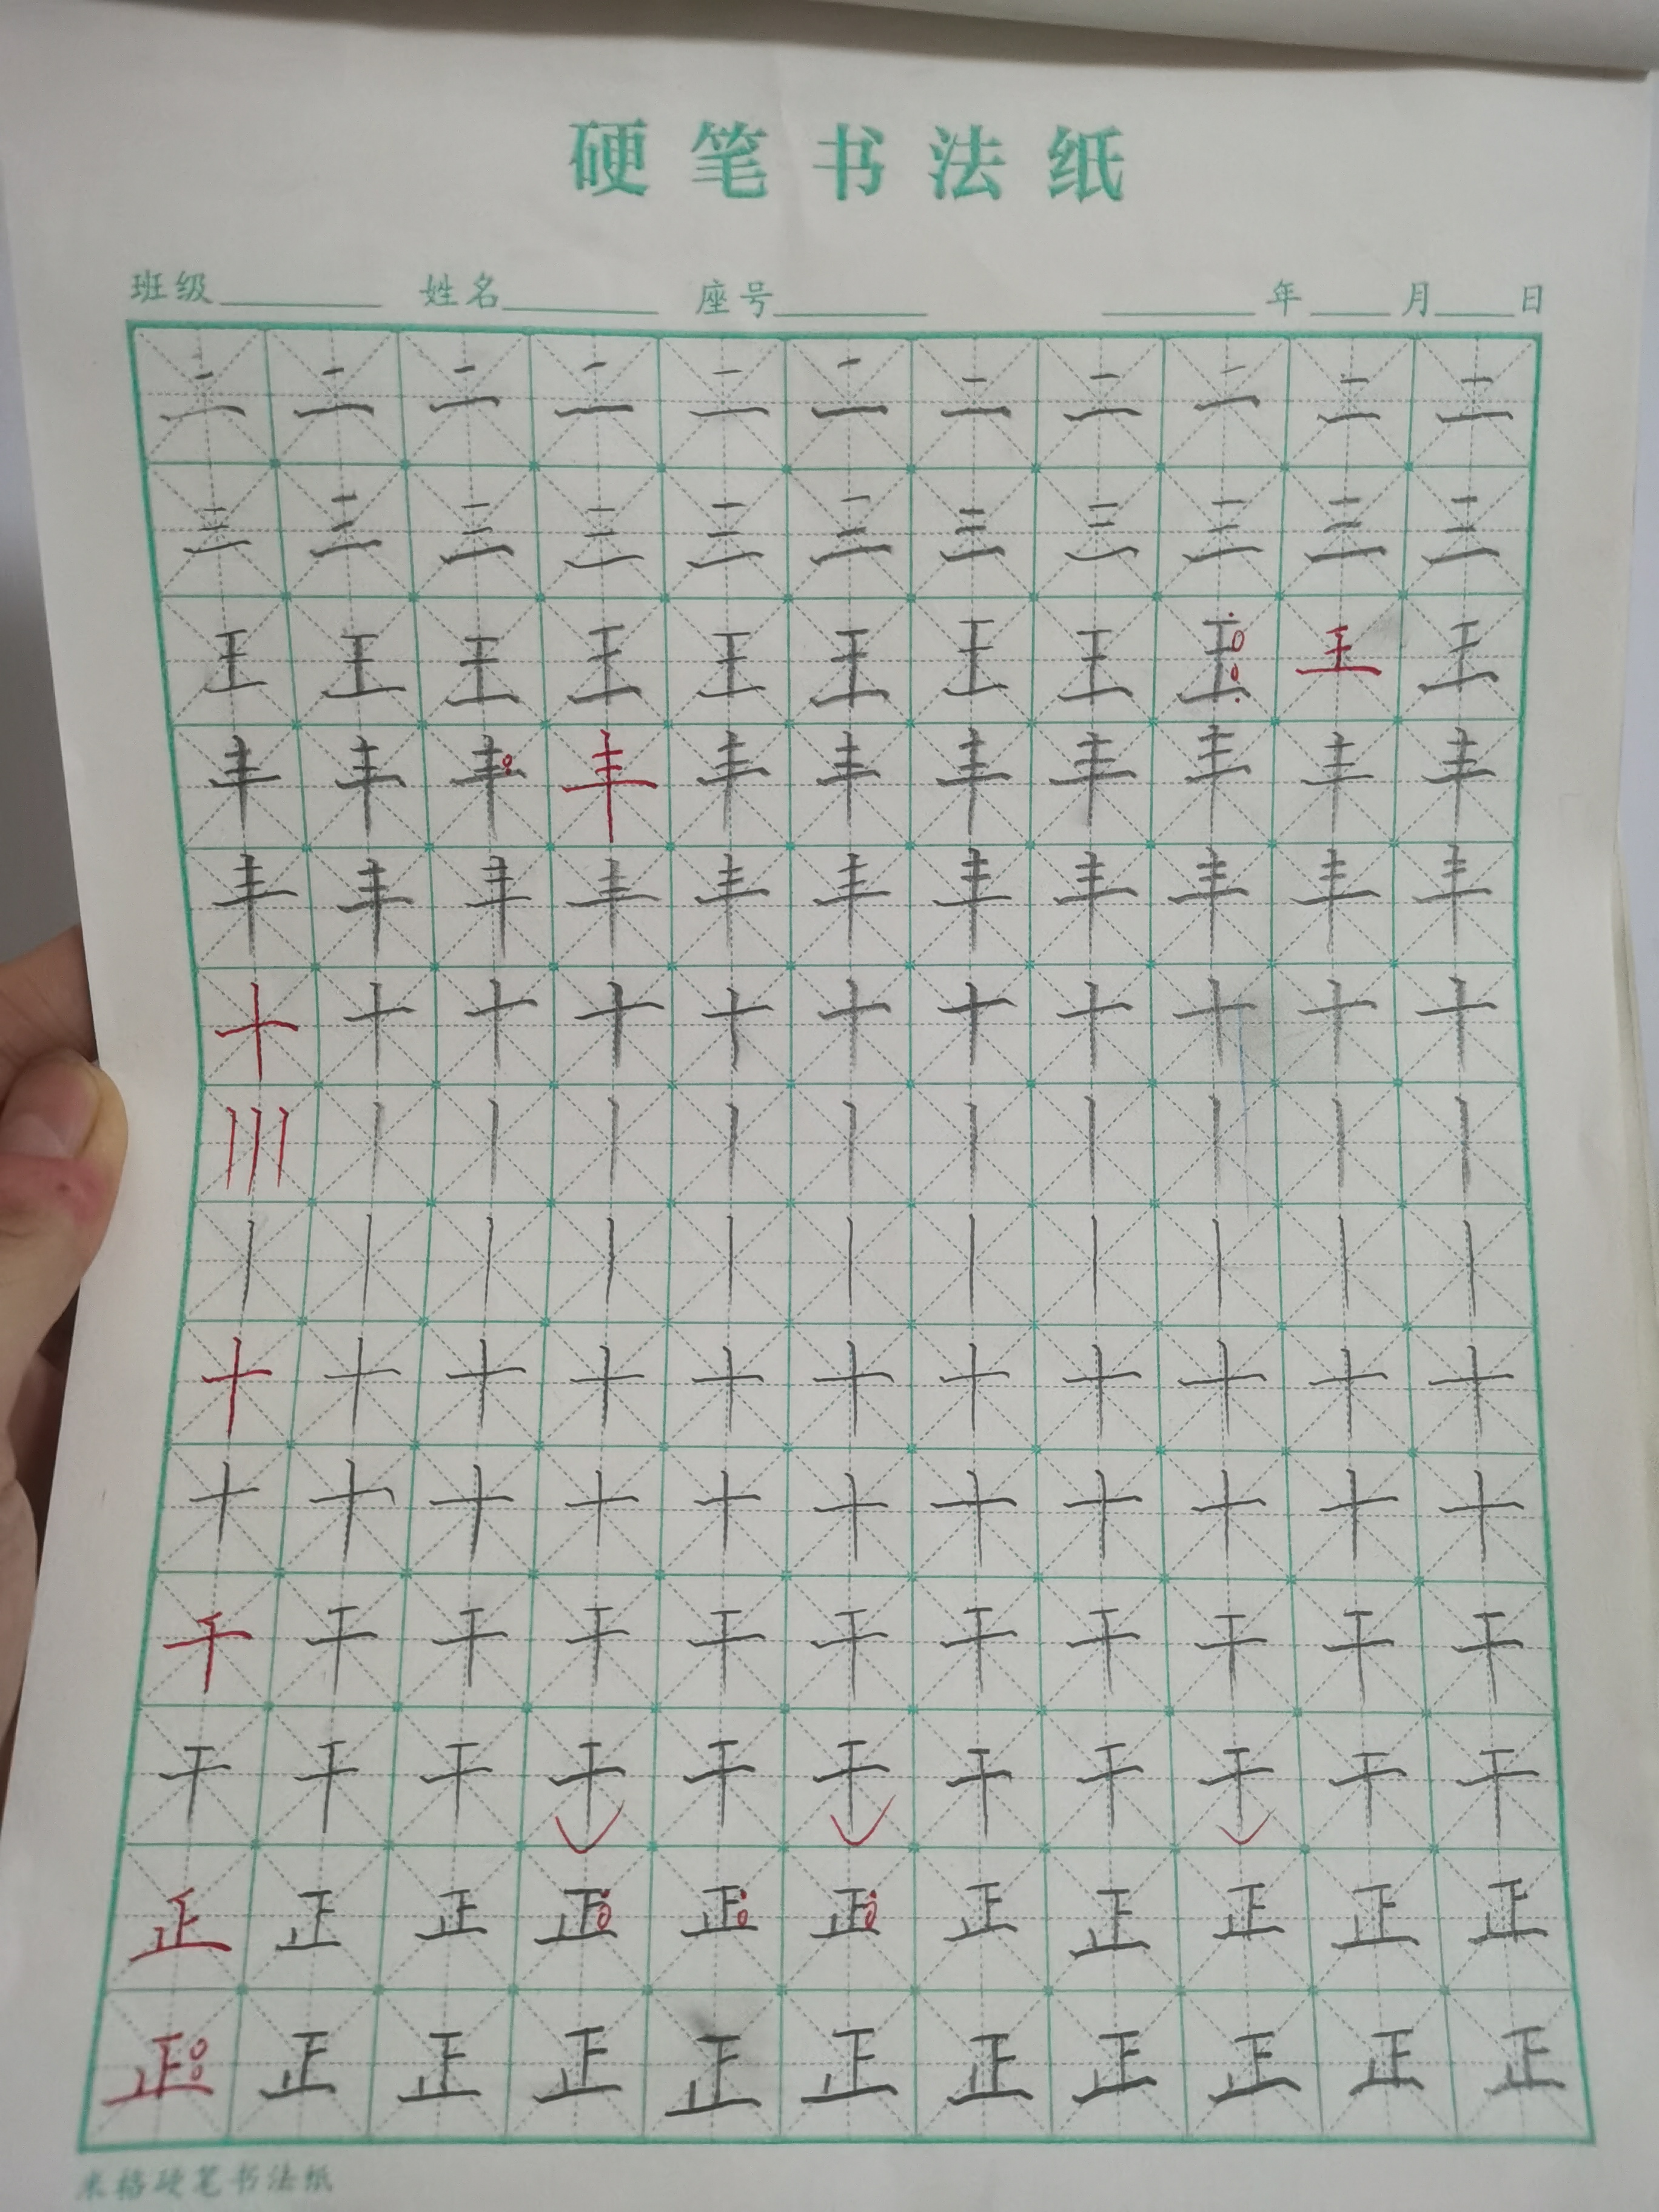 硬笔书法纸
班级 姓名 座号 年 月 日
二 二 二 二 二 二 二 二 二 二 二
三 三 三 三 三 三 三 三 三 三 三
王 王 王 王 王 王 王 王 王 王 王
丰 丰 丰 丰 丰 丰 丰 丰 丰 丰 丰
丰 丰 丰 丰 丰 丰 丰 丰 丰 丰 丰
十 十 十 十 十 十 十 十 十 十 十
丨丨丨 丨 丨 丨 丨 丨 丨 丨 丨 丨 丨
丨 丨 丨 丨 丨 丨 丨 丨 丨 丨 丨
十 十 十 十 十 十 十 十 十 十 十
十 十 十 十 十 十 十 十 十 十 十
干 干 干 干 干 干 干 干 干 干 干
干 干 干 干 干 干 干 干 干 干 干
正 正 正 正 正 正 正 正 正 正 正
正 正 正 正 正 正 正 正 正 正 正
米格硬笔书法纸